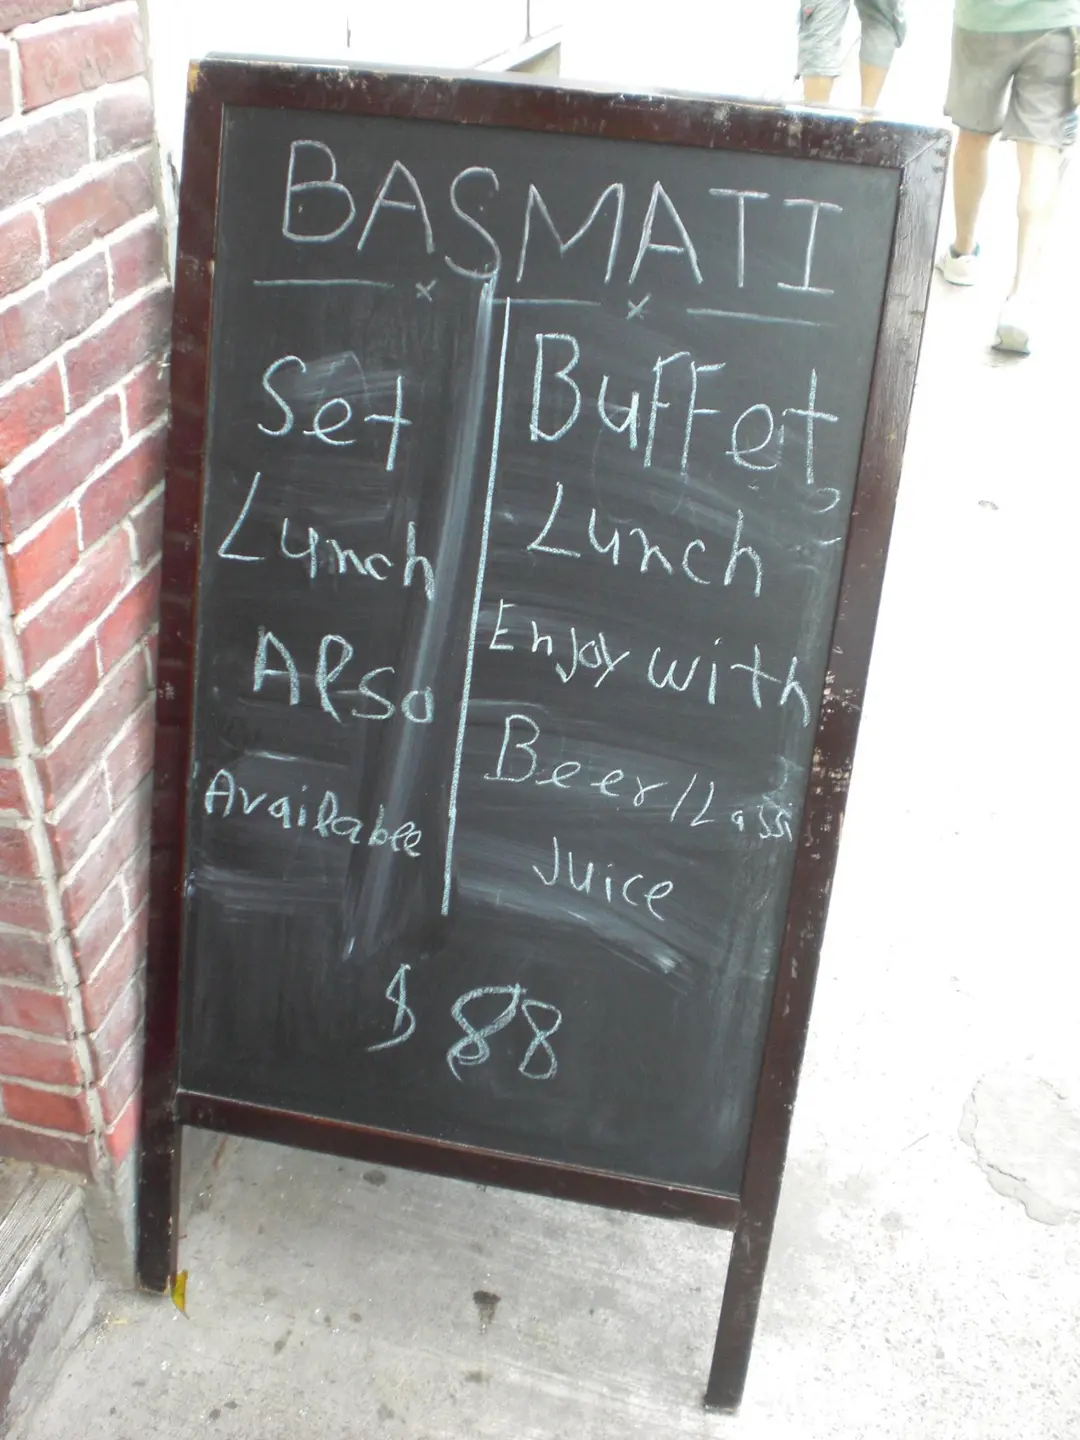 BASMATI
Set
Lunch
Also
Available
Buffet
Lunch
Enjoy with
Beer/Lassi
Juice
$ 88